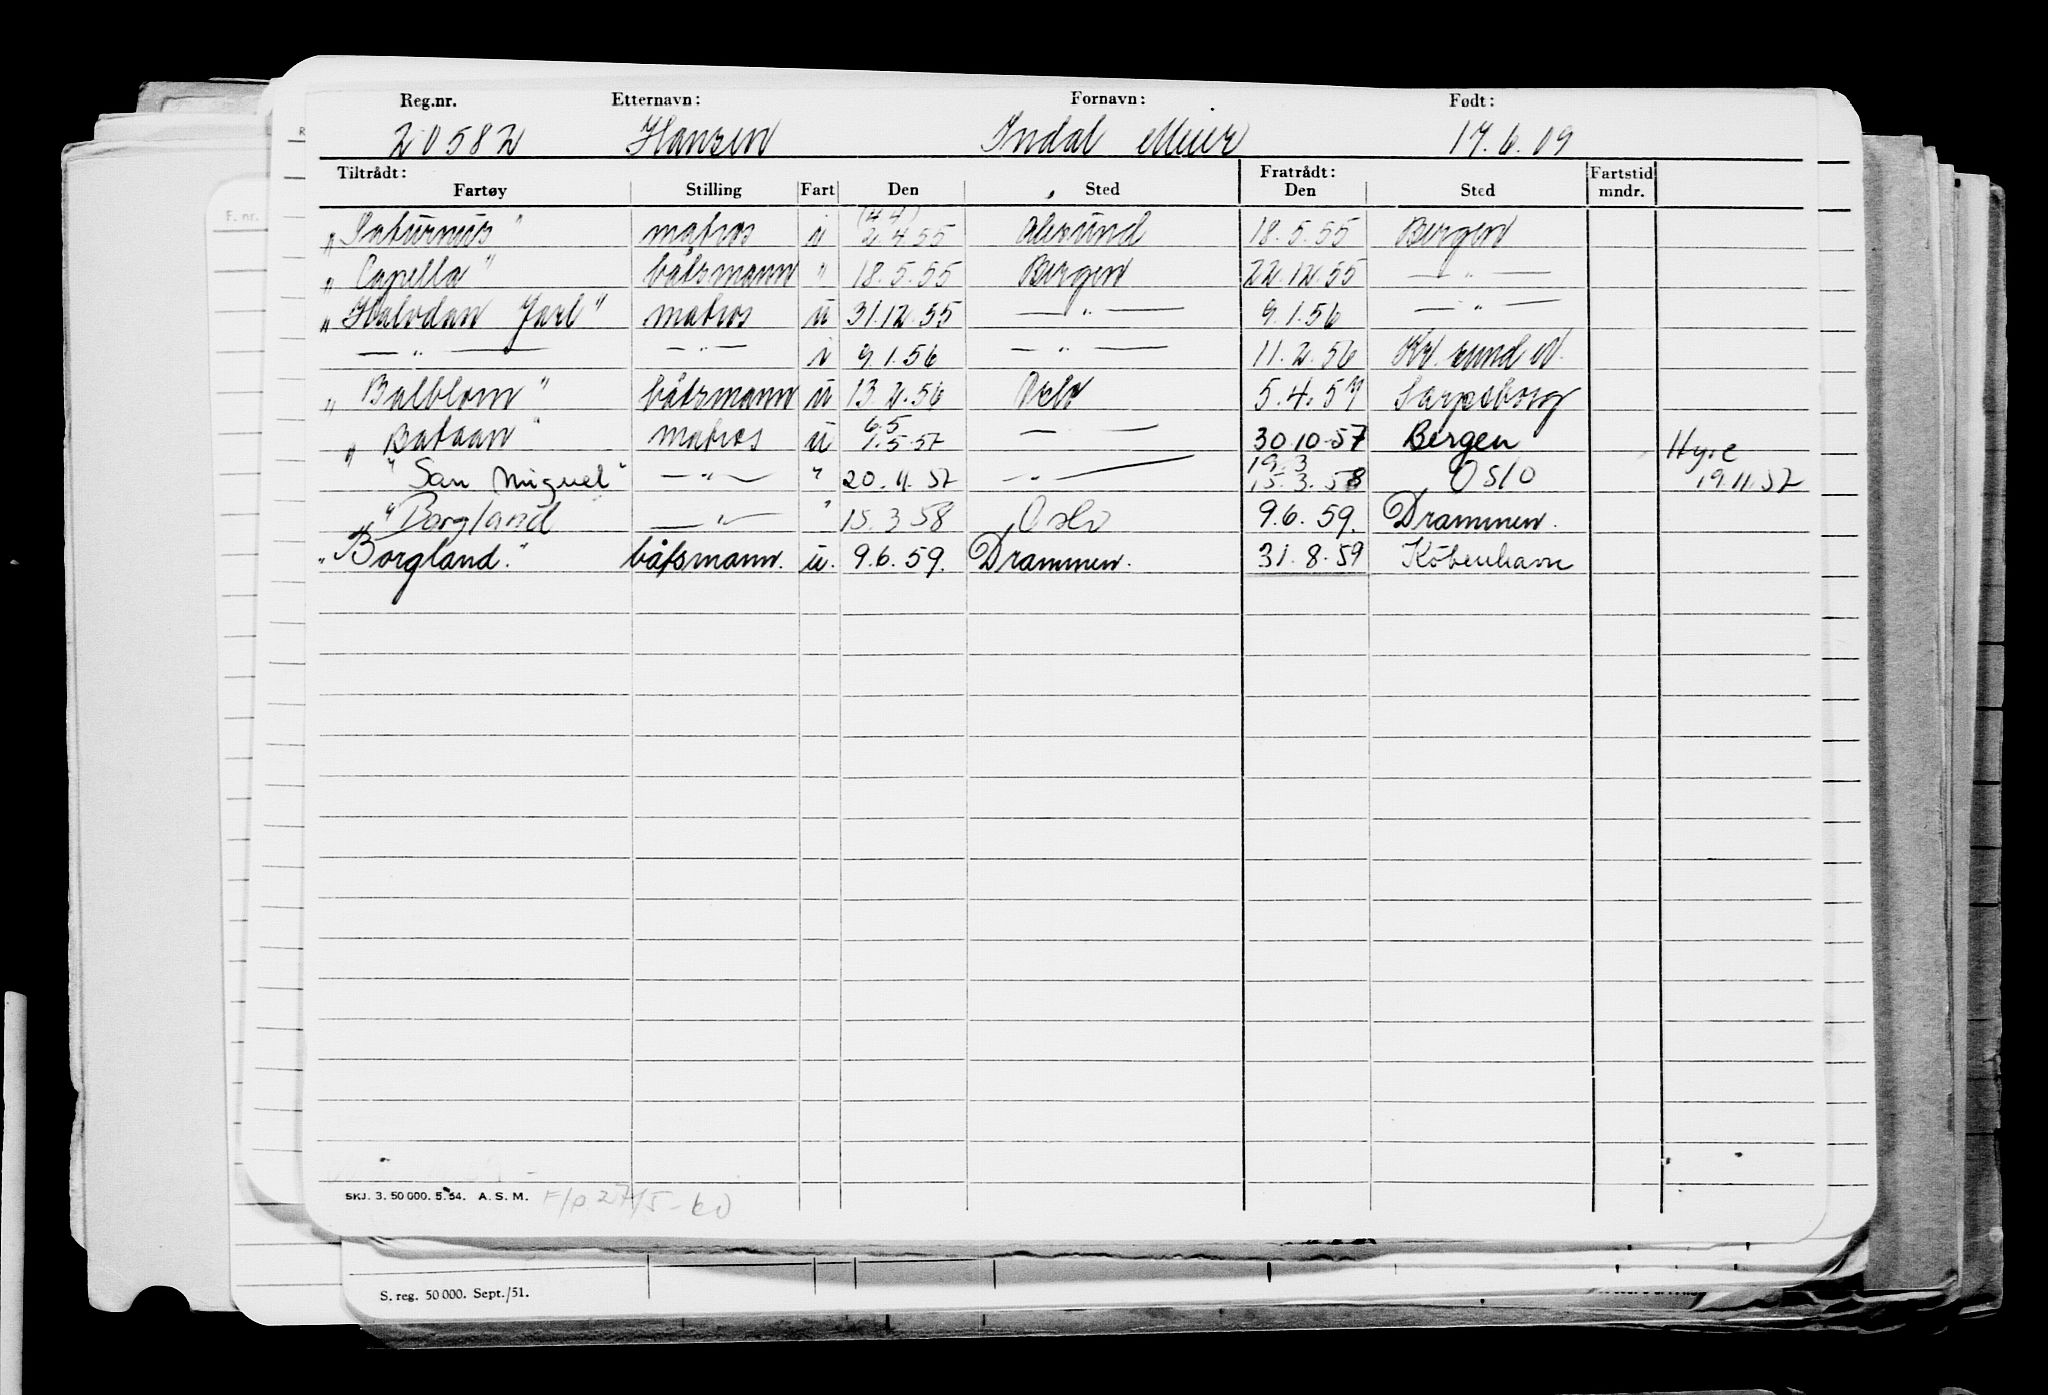 Reg.nr. Etternavn: Fornavn: Født:
20582 Hansen Indal Meier 17.6.09
Tiltrådt: Fratrådt: Fartstid
Fartøy Stilling Fart Den Sted Den Sted mndr.
(4 4)
"Saturnus" matros i 2.4.55 Ålesund 18.5.55 Bergen
"Capella" båtsmann " 18.5.55 Bergen 22.12.55 — " —
"Halvdan Jarl" matros u 31.12.55 — " — 9.1.56 — " —
— " — — " — i 9.1.56 — " — 11.2.56 Kr. sund N.
"Balblom" båtsmann u 13.2.56 Oslo 5.4.57 Sarpsborg
6.5
"Bataan" matros u 1.5.57 — " — 30.10.57 Bergen Hyre
19.3
"San Miguel" — " — " 20.11.57 — " — 15.3.58 Oslo 19.11.57
"Borgland — " — " 15.3.58 Oslo 9.6.59. Drammen.
"Borgland." båtsmann. u. 9.6.59. Drammen. 31.8.59 København
SKJ. 3. 50 000. 5.54. A. S. M. F/p 27/5-60
S. reg. 50 000. Sept./51.
F. nr.